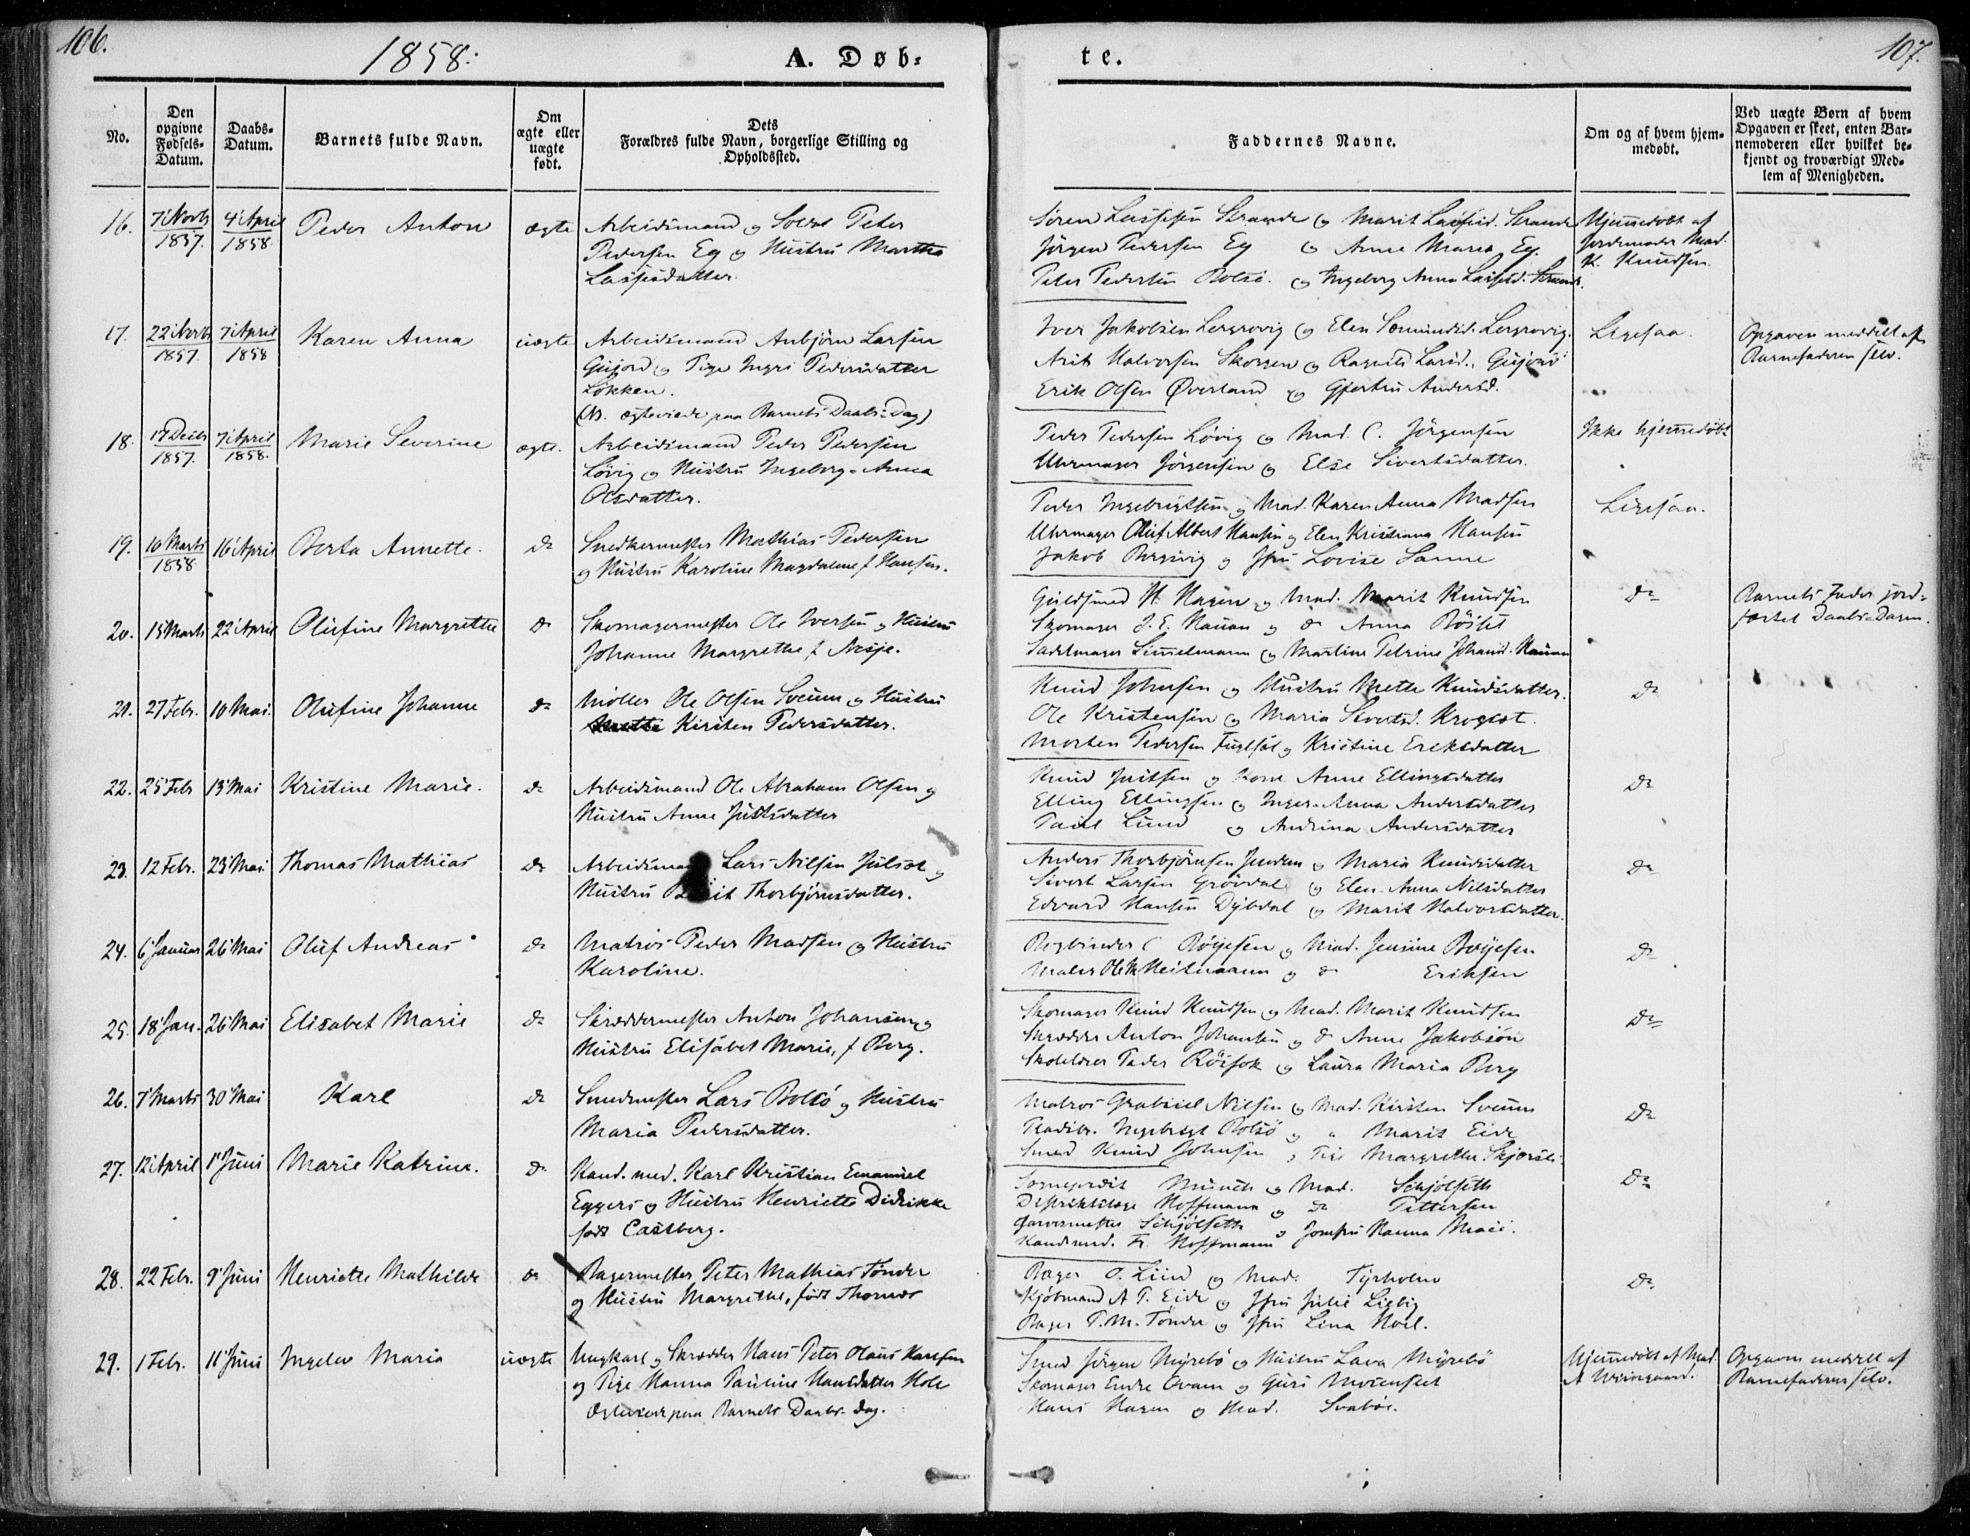 106.
1858.
A. Døb-
te.
107.
No.
Den opgivne Fødsels-Datum.
Daabs-Datum.
Barnets fulde Navn.
Om ægte eller uægte født.
Dets Forældres fulde Navn, borgerlige Stilling og Opholdssted.
Faddernes Navne.
Om og af hvem hjem-
medøbt.
Ved uægte Børn af hvem
Opgaven er skeet, enten Bar-
nemoderen eller hvilket be-
kjendt og troværdigt Med-
lem af Menigheden.
16. 7' Novb 1857. 4' April 1858 Peder Anton ægte Arbeidsmand og Soldat Peter
Pedersen Eg og Hustru Martha
Lassesdatter.
Søren Lassesen Strande og Marit Lassesd. Strande
Jørgen Pedersen Eg og Anne Maria Eg.
Peter Pedersen Bolsø. og Ingeborg Anna Lassesd. Strande.
Hjemmedøbt af
Jordemoder Mad.
K. Knudsen.
17. 22' Novb 1857. 7' April 1858 Karen Anna uægte Arbeidsmand Anbjørn Larsen
Gujord og Pige Ingri Pedersdatter
Løkken.
(NB. ægteviede paa Barnets Daabs-Dag)
Iver Jakobsen Lergrovig og Elen Lergrovig.
Halvorsen og Ragnild Larsd.
Erik Olsen Øverland og Gjertru Andersd.
Ligesaa.
Opgaven meddelt af
Barnefaderen selv.
18. 17 Decbr 1857. 7' April 1858. Marie Severine ægte. Arbeidsmand Peder Pedersen
Løvig og Hustru Ingeborg-Anna
Olsdatter.
Peder Pedersen Løvig og Mad. C. Jørgensen
Uhrmager Jørgensen og Else Sivertsdatter.
Ikke hjemmedøbt
19. 10 Marts 1858 16' April Berta Annette. do Snedkermester Mathias Pedersen
og Hustru Karoline Magdalene f. Hansen.
Peder Ingebrigtsen og Mad. Karen Anna Madsen
Uhrmager Oluf Albert Hansen og Elen Kristiana Hansen
Jakob og Jfru Lovise Sanne
Ligesaa.
20. 15 Marts 22' April Olufine Margrethe do Skomagermester Ole Iversen og Hustru
Johanne Margrethe f. Nesje.
Guldsmed H. Hagen og Mad. Marit Knudsen
Skomager J. E. Hauan og do Anna Røsset
Sadelmager og Martine Petrine Johansd. Hauan
do
Barnets Fader jord-
fæstet Daabs-Dagen.
21. 27 Febr. 10 Mai. Olufine Johanne do Møller Ole Olsen Sveum og Hustru
Kirsten Pedersdatter.
Knud Johnsen og Hustru Mette Knudsdatter.
Ole Kristensen og Maria Sivertsd.
Morten Pedersen Fuglset og Kristine Eriksdatter
do
22. 25' Febr 13' Mai Kristine Marie. do Arbeidsmand Ole Abraham Olsen og
Hustru Anne Justsdatter
Knud Justsen og Kone Anne Ellingsdatter
Elling Ellingsen og Inger-Anna Andersdatter
Paul Lund og Andrina Andersdatter
do
23. 12 Febr. 23' Mai. Thomas Mathias do Arbeidsmand Lars Nilsen Julset og
Hustru Thorbjørnsdatter.
Anders Thorbjørnsen og Maria Knudsdatter
Sivert Larsen Grøvdal og Elen-Anna Nilsdatter
Edvard Hansen Dybdal og Marit Halvorsdatter.
do
24. 6' Januar 26' Mai Oluf Andreas do Matros Peder Madsen og Hustru
Karoline.
Bogbinder C. Bøyesen og Mad. Jensine Bøyesen
Maler Heitmann og do Eriksen
do
25. 18' Jan. 26' Mai Elisabet Marie do Skræddermester Anton Johansen og
Hustru Elisabet Marie, f. Berg.
Skomager Knud Knudsen og Mad. Marit Knudsen
Skrædder Anton Johansen og do Anne Jakobsøn
Skolelærer Peder Røsok og Laura Maria Berg
do
26. 7' Marts 30' Mai Karl do Smedmester Lars Bolsø og Hustru
Maria Pedersdatter.
Matros Grabiel Nilsen og Mad. Kirsten Sveum
Ingebrigt Bolsø og " Marit Eide
Smed Knud Johnsen, Pige Margrethe
do
27. 12' April 1' Juni Marie Katrine. do Kand. med. Karl Kristian Emanuel
Eggers og Hustru Henriette Didrikke
født Castberg.
Sogneprest Munch og Mad. Schjølseth
Distriktslæge Hoffmann og do Pettersen
Garvermester Schjølseth
Kand. med. Fr. Hoffmann Jomfru Hanna
do
28. 22 Febr. 9' Juni Henriette Mathilde do Bagermester Peter Mathias Tønder
og Hustru Margrethe, født
Bager O. Lund og Mad. Tyrholm
Kjøbmand A. T. Eide og Jfru Julie Liebig
Bager P. M. Tønder og Jfru Lina Noel.
do
29. 1 Febr. 11' Juni Ingelev Maria uægte Ungkarl og Skrædder Hans Peter Olaus Karlsen
og Pige Hanna Pauline Hansdatter Hole
Ægteviede paa Barnets Daabs-Dag.
Smed Jørgen Myrebø og Hustru Lava Myrebø
Skomager Endre Evam og Guri Moenset
Hans Hagen og Mad. Svabøe.
Hjemmedøbt af Mad.
A.
Opgaven meddelt af
Barnefaderen selv.